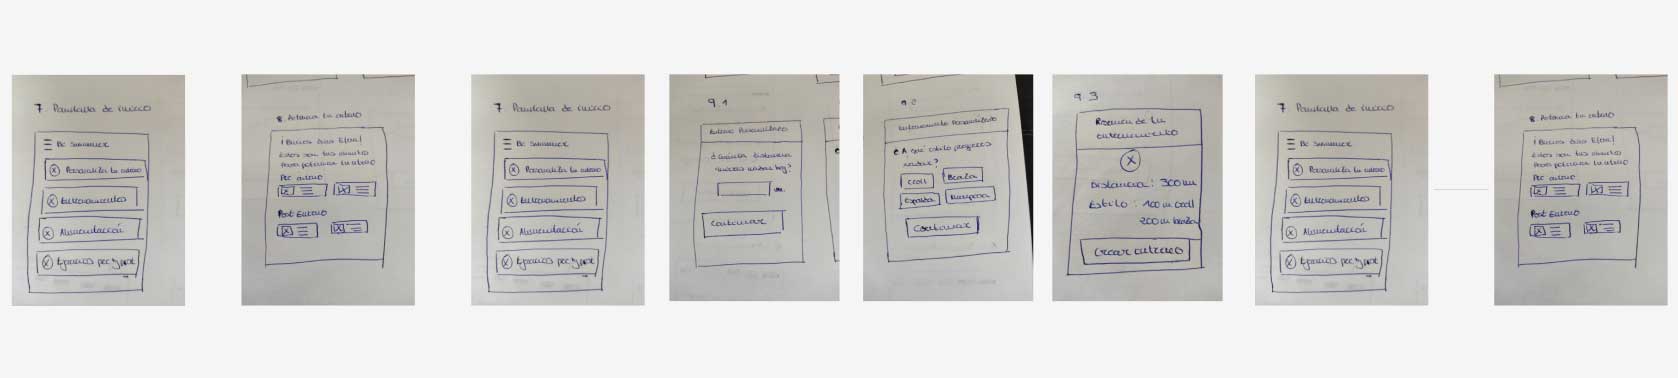 7 Pantalla de inicio
Be Swimmer
Personaliza tu entreno
Entrenamientos
Alimentación
8 Potencia tu entreno
¡Buenos días
Estos son tus
Para potenciar tu entreno
Pre entreno
Post Entreno
7 Pantalla de inicio
Be Swimmer
Personaliza tu entreno
Entrenamientos
Alimentación
9.1
Personalizado
¿Cuánta distancia
quieres nadar hoy?
m.
Continuar
9.2
Entrenamiento Personalizado
¿A qué estilo prefieres
nadar?
Croll
Braza
Espalda
Mariposa
Continuar
9.3
Resumen de tu
entrenamiento
Distancia: 300m
Estilo: 100m croll
200m braza
Crear entreno
7 Pantalla de inicio
Be Swimmer
Personaliza tu entreno
Entrenamientos
Alimentación
8 Potencia tu entreno
¡Buenos días
Estos son tus
Para potenciar tu entreno
Pre entreno
Post Entreno